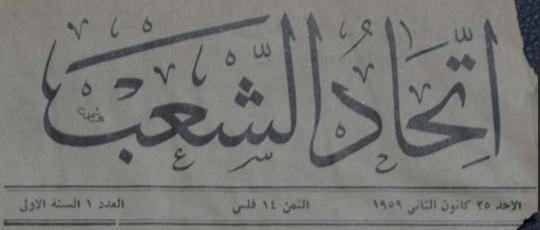 اِتِّحَادُ الشَّعْب
الاحد ٢٥ كانون الثاني ١٩٥٩ الثمن ١٤ فلس العدد ١ السنة الاولى